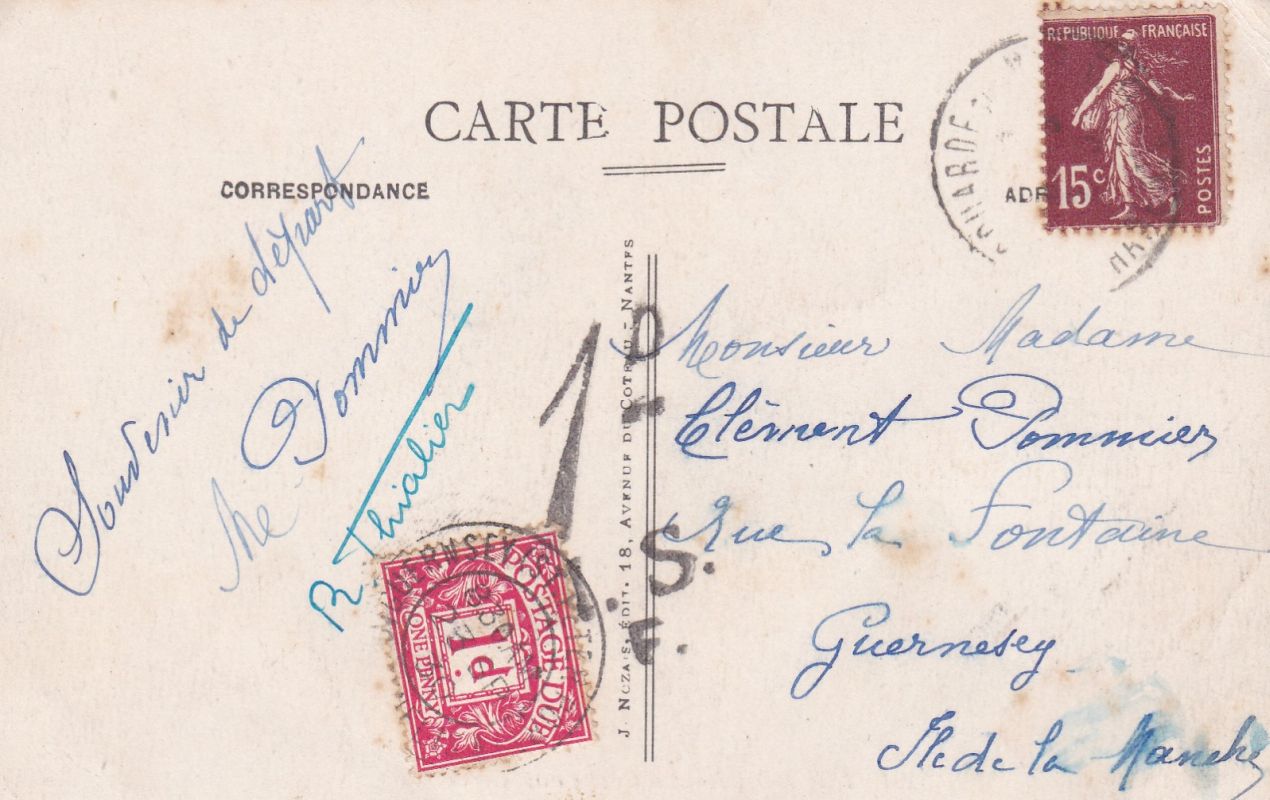 CARTE POSTALE
CORRESPONDANCE
Souvenir de départ
Me Pommier
R. Thialier
J. Nozais, Édit. 18, Avenue du Coteau - Nantes
RÉPUBLIQUE FRANÇAISE
15c
POSTES
ADR
1D
S.
F.
Monsieur Madame
Clément Pommier
Rue la Fontaine
Guernesey
Ile de la Manche
POSTAGE DUE
1d
ONE PENNY
GUERNSEY